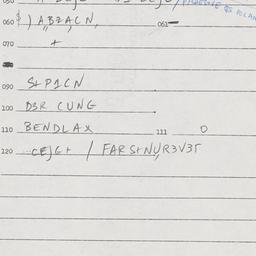 060 $ ) ABZACN, 061
070 +
090 S+P1CN
100 D3R CUNG
110 BENDLAX 111 O
120 CEJG+ / FARS+NUR3V3Γ